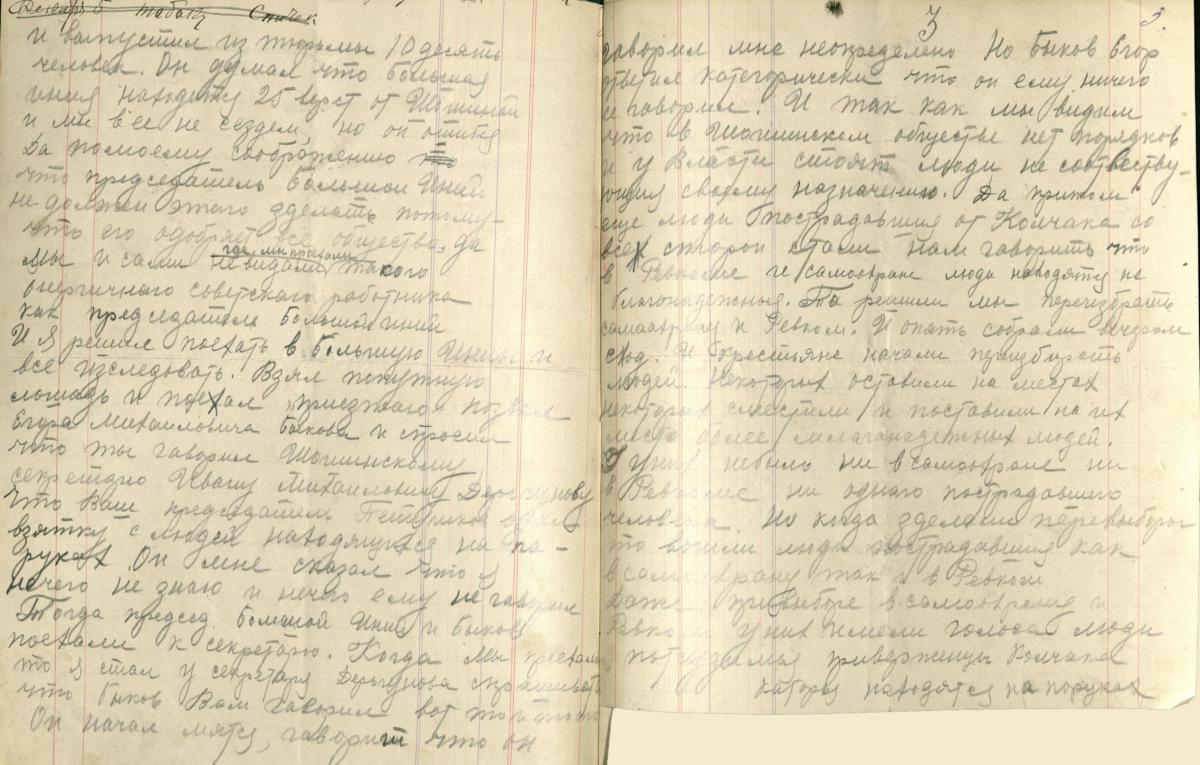 Декабр 5 табак спичек
и выпустил из тюрьмы 10 десять
человек. Он думал что большая
иния находитц 25 верст от Шошиной
и мы в ее не сездем, но он ошибся
Да помоему соображению
что председатель большой Инии
не должен этаго зделать потому-
что его одобряет все общества, да
где мы проехали
мы и сами не видали такого
энергичнаго советскаго работника
как председатель большой инии
И Я решил поехать в большую Инию и
все изследовать. Взял попутную
лошадь и поехал приезжаю позвал
Егора Михаиловича Быкова и спросил
что ты говорил Шошинскому
секретарю Ивану Михаиловичу Дерюгунову
что Ваш председатель Петриков
взятку с людей находящихся на по-
руках Он мне сказал что я
нечего не знаю и нечего ему не говорил
Тогда председ. большой Инии и Быков
поехали к секретарю. Когда мы приехали
то я стал у секретаря Дерюгунова спрашивать
что Быков Вам говорил вот то и то
Он начал мятся, гаворит что он
3
3.
гаворил мне неопределено Но Быков Егор
ответил категорически что он ему ничего
не говорил. И так как мы видим
что в Шошинском обществе нет порядков
и у власти стоят люди не соотвеству-
ющия своему назначению. Да притом
еще люди пострадавшия от Колчака со
всех сторон стали нам гаворить что
в Ревкоме и самоохране люди находятц не
благонадежныя. То решили мы переизбрать
самоохрану и Ревком. И опять собрали вечером
сход. И крестьяне начали переизбирать
людей. Некоторых оставили на местах
некоторых сместили и поставили на их
место более благонадежных людей.
У них небыло ни в самоохране ни
в Ревкоме ни однаго пострадавшего
человека. Но когда зделали перевыборы
то вошли люди пострадавшия как
в самоохрану так и в Ревком
Даже при выборе в самоохрание и
Ревком у них имели голоса люди
приверженцы Колчака
каторыя находятся на поруках